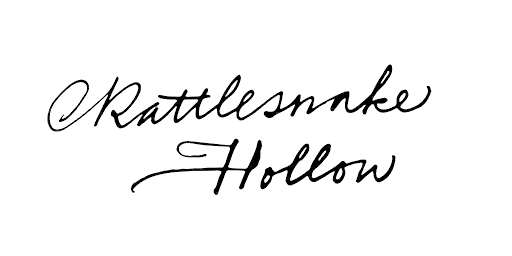 Rattlesnake
Hollow